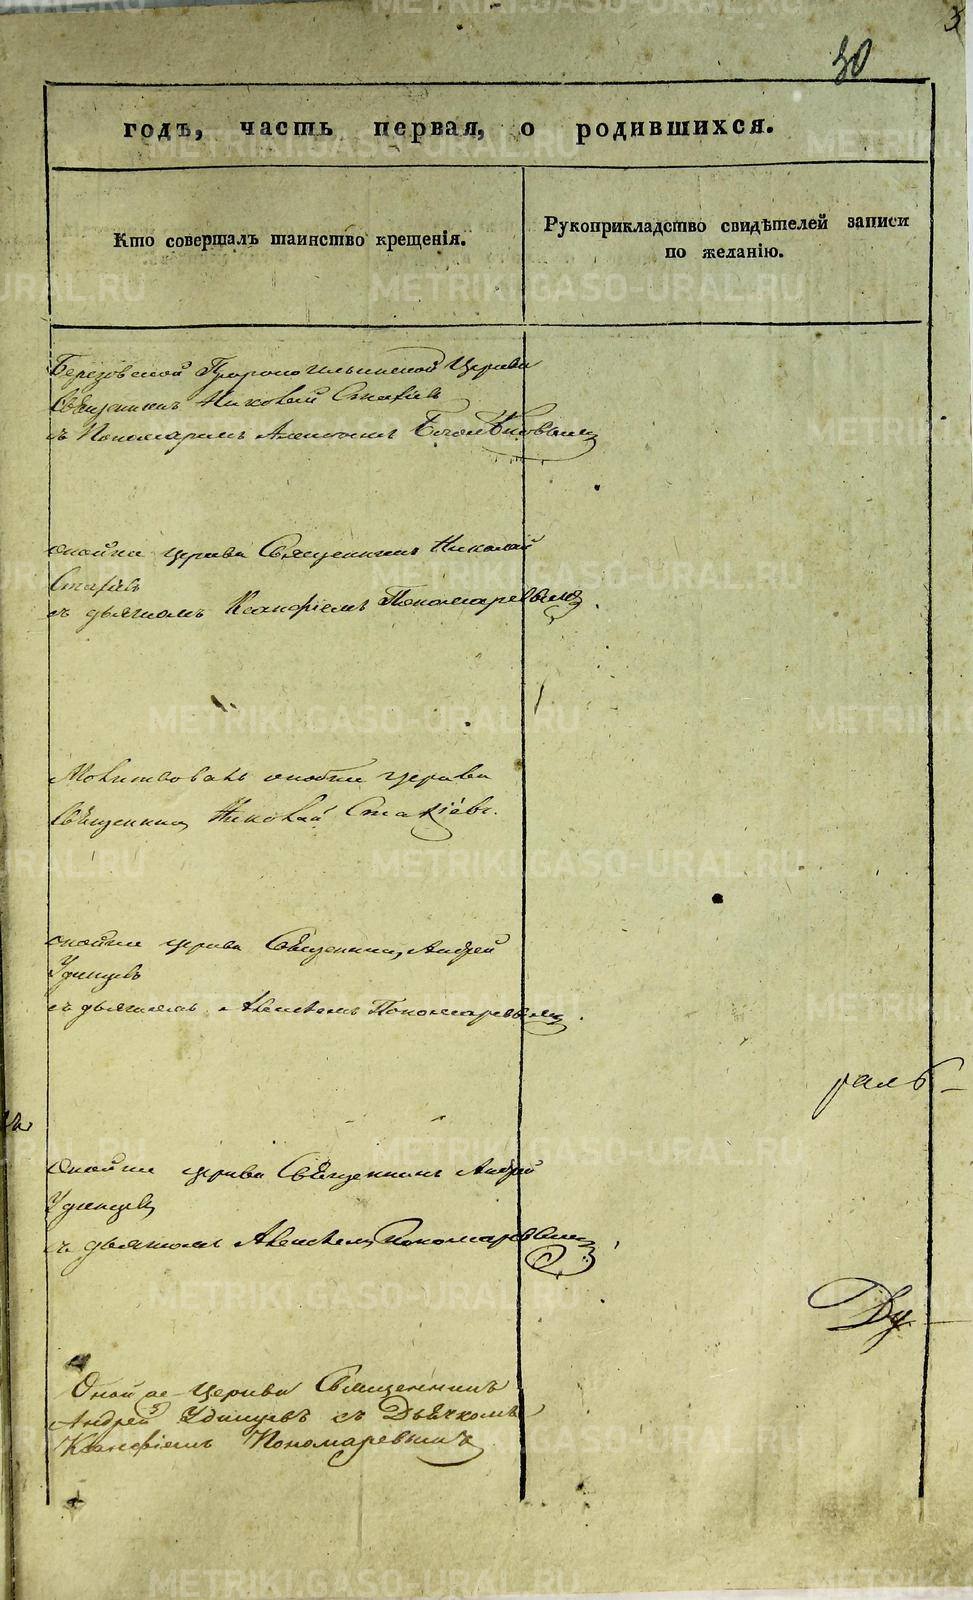 30
годъ, часть первая, о родившихся.
Кто совершалъ таинство крещенія.
Рукоприкладство свидѣтелей записи
по желанію.
Березовской Пророкоильинской Церкви
Священникъ Николай Стахіевъ
съ Пономаремъ
Онойже церкви Священникъ Николай
Стахіевъ
съ дьячкомъ Ксанфіемъ Пономаревымъ
Молитвовалъ онойже церкви
Священникъ Николай Стахіевъ.
Онойже церкви Священникъ Андрей
Удинцевъ
съ дьячкомъ Пономаревымъ.
ралъ
Онойже церкви Священникъ Андрей
Удинцевъ
съ дьячкомъ Пономаревымъ
Ду
Оной же Церкви Священникъ
Андрей Удинцевъ съ Дьячкомъ
Ксанфіемъ Пономаревымъ
METRIKI.GASO-URAL.RU